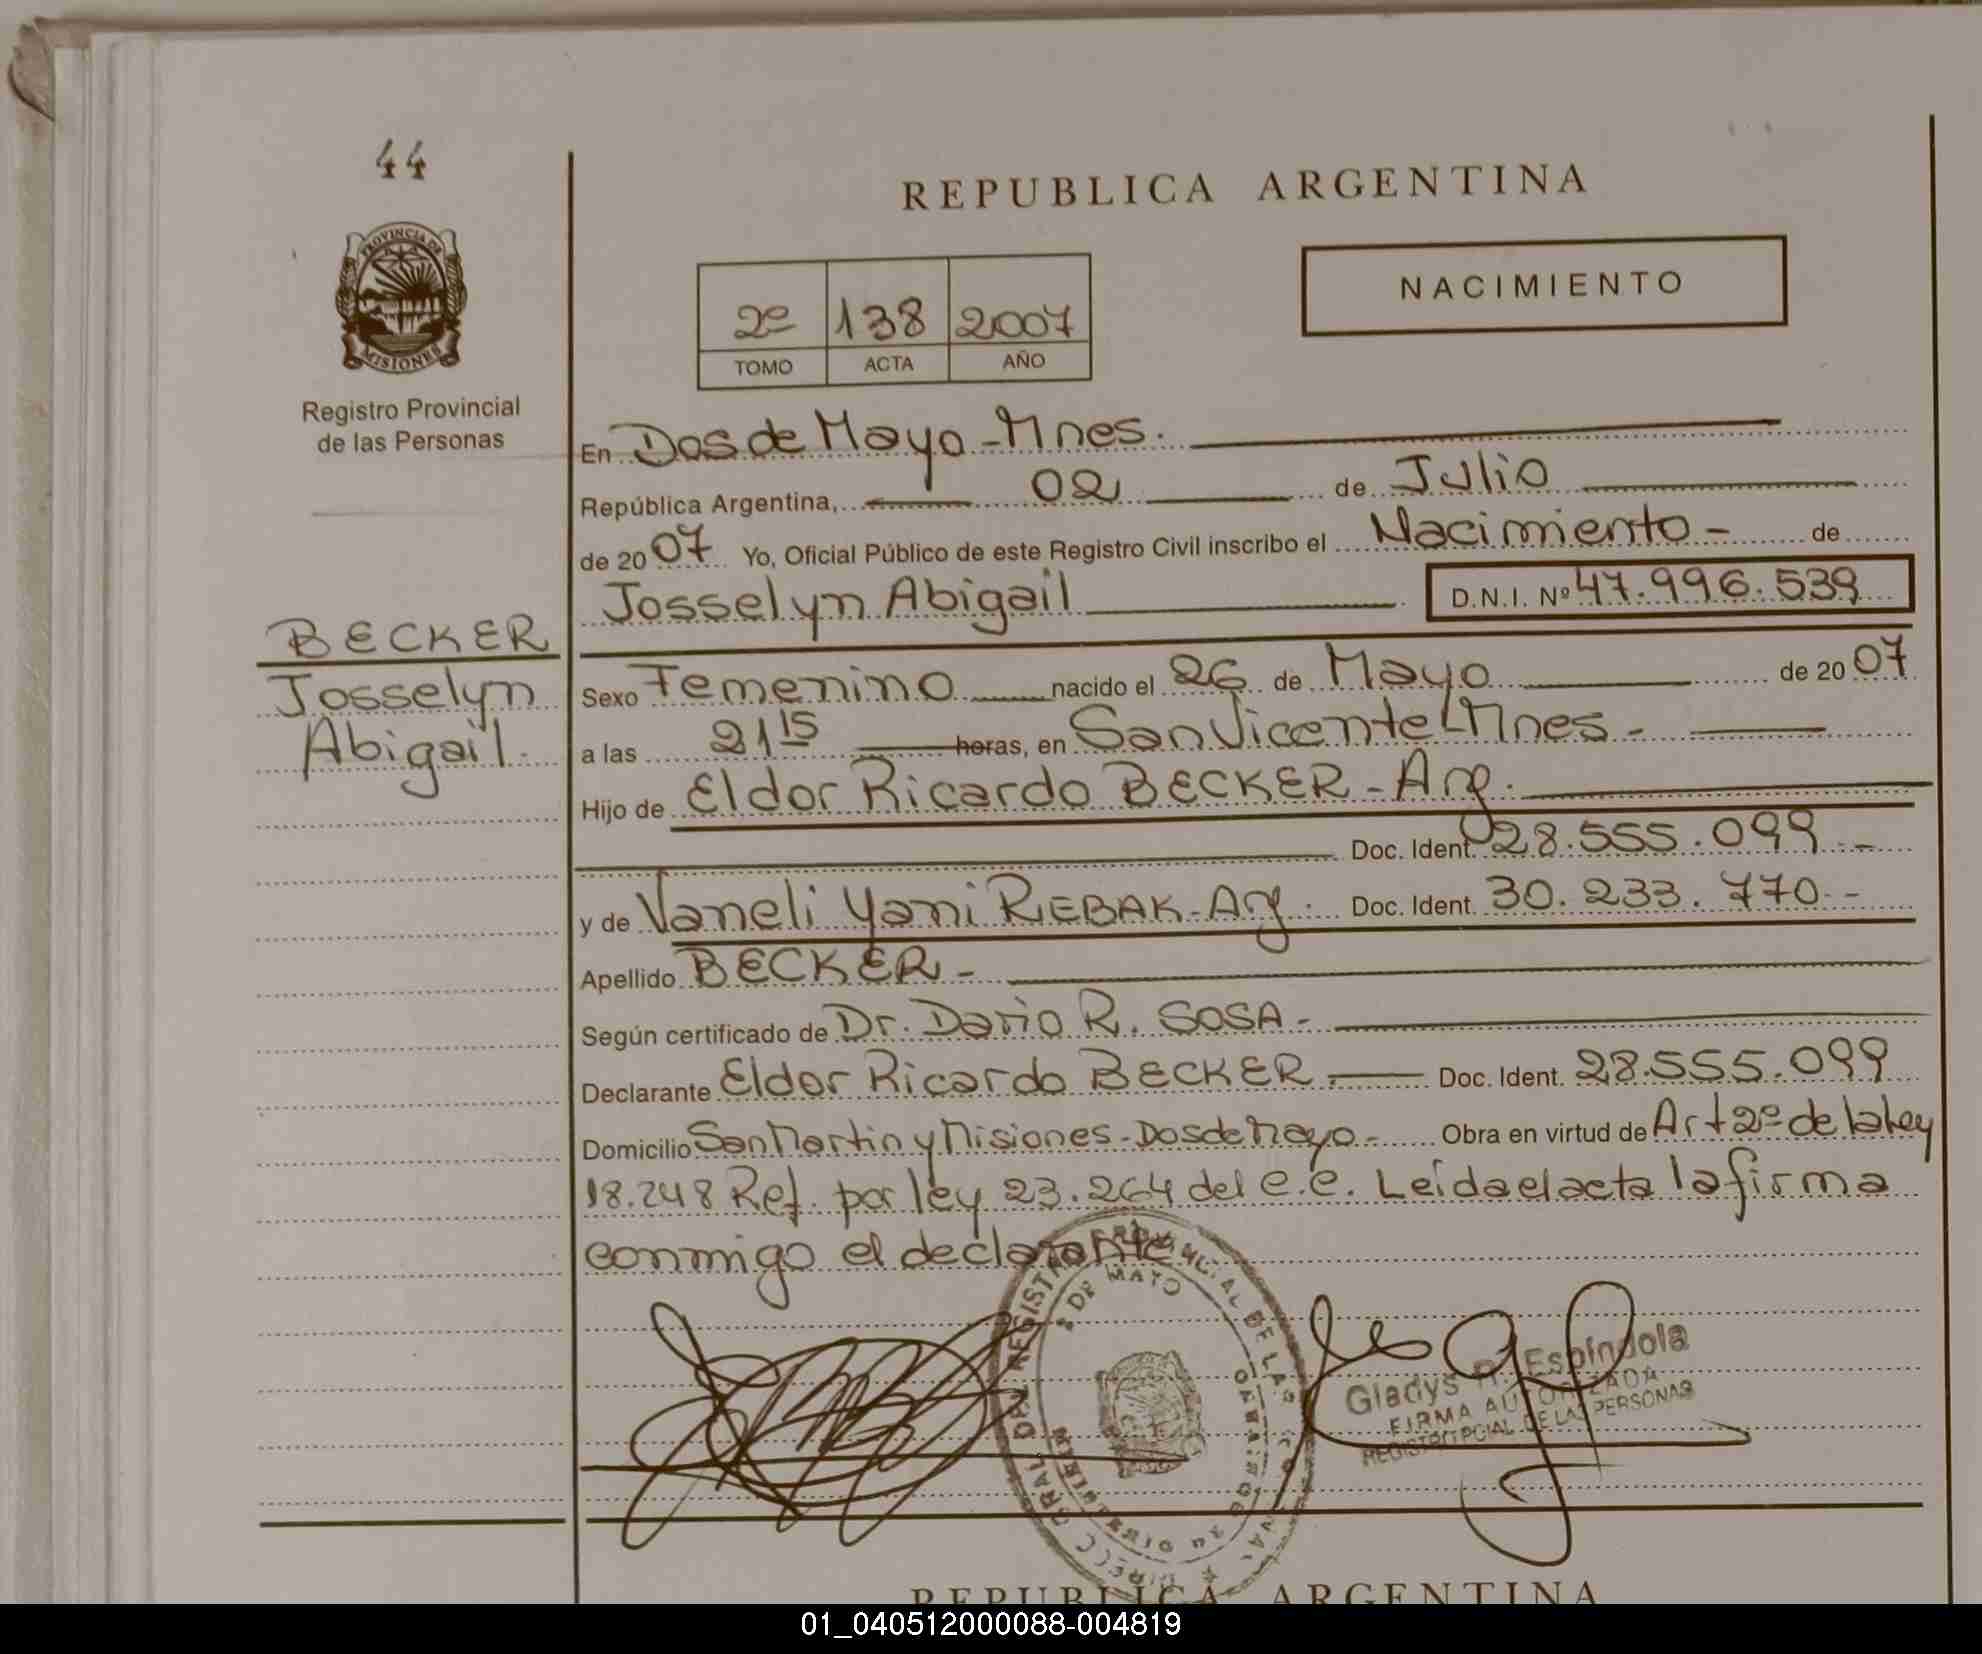 44
REPUBLICA ARGENTINA
PROVINCIA DE
MISIONES
NACIMIENTO
2º 138 2007
TOMO ACTA AÑO
Registro Provincial
de las Personas
En Dos de Mayo - Mnes.
República Argentina, 02 de Julio
de 2007 Yo, Oficial Público de este Registro Civil inscribo el Nacimiento - de
Josselyn Abigail D.N.I. Nº 47.996.539
BECKER
Josselyn
Abigail.
Sexo Femenino nacido el 26 de Mayo de 2007
a las 21 15 horas, en San Vicente - Mnes -
Hijo de Eldor Ricardo BECKER - Arg.
Doc. Ident. 28.555.099 -
y de Vaneli Yani REBAK - Arg. Doc. Ident. 30.233.770 -
Apellido BECKER -
Según certificado de Dr. Dario R. SOSA -
Declarante Eldor Ricardo BECKER - Doc. Ident. 28.555.099
Domicilio San Martin y Misiones - Dos de Mayo - Obra en virtud de Art 2º de la Ley
18.248 Ref. por ley 23.264 del c.c. Leída el acta la firma
conmigo el declarante
DE MAYO
Gladys Espíndola
FIRMA AUTORIZADA
REGISTRO PCIAL DE LAS PERSONAS
REPUBLICA ARGENTINA
01_040512000088-004819